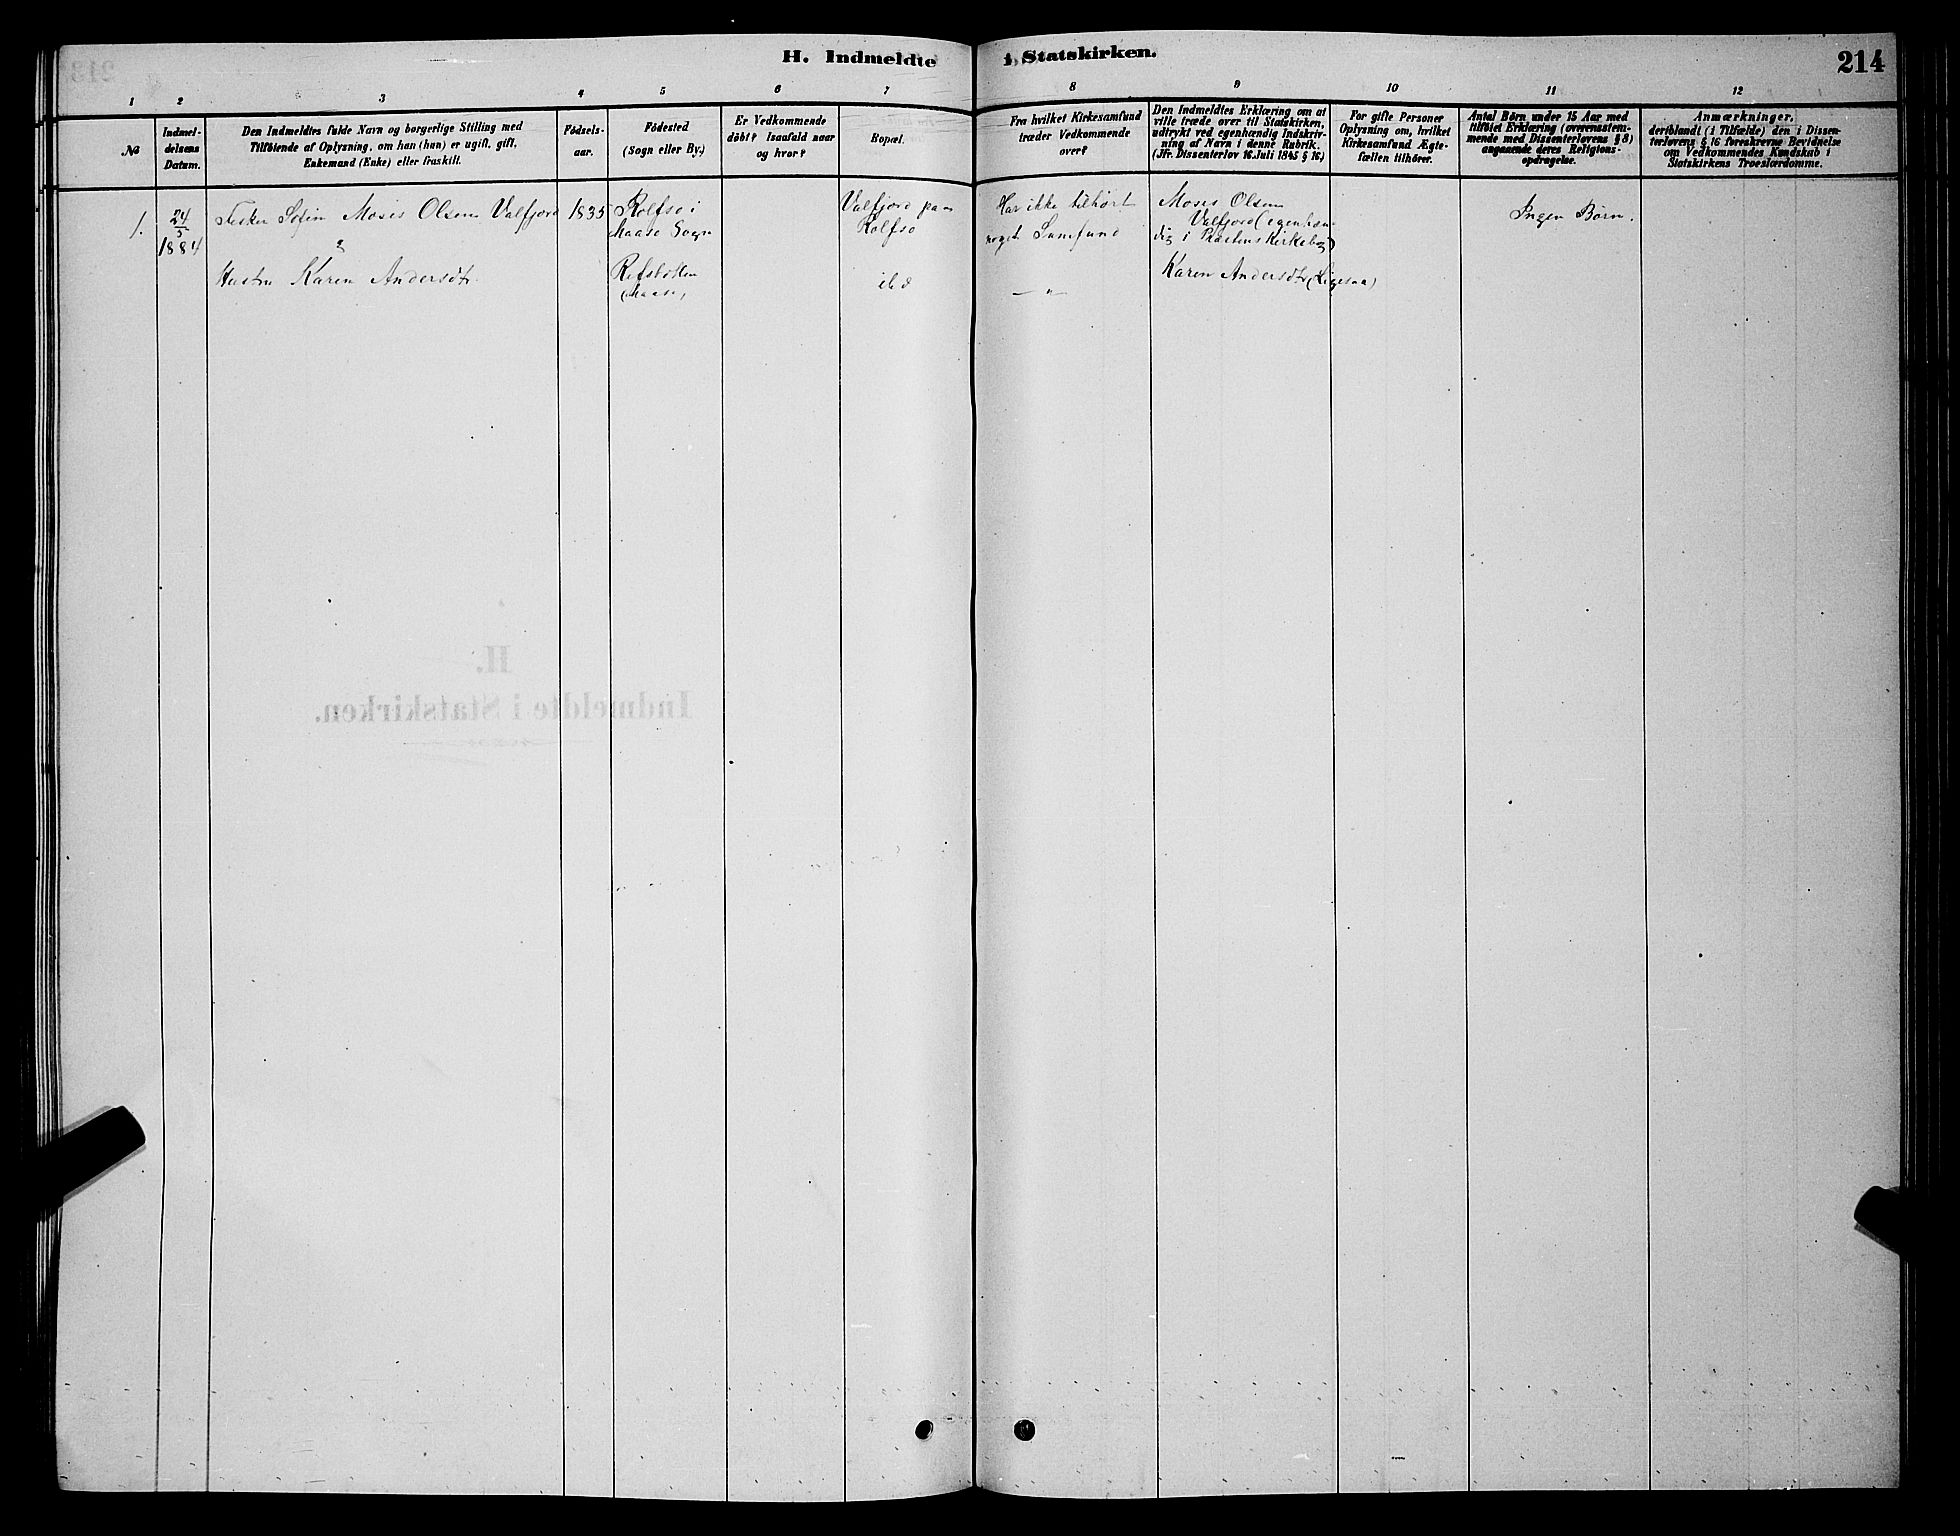 H. Indmeldte i Statskirken.
214
1 2 3 4 5 6 7 8 9 10 11 12
№
Indmel-
delsens
Datum.
Den Indmeldtes fulde Navn og borgerlige Stilling med
Tilföiende af Oplysning, om han (hun) er ugift, gift,
Enkemand (Enke) eller fraskilt.
Födsels-
aar.
Födested
(Sogn eller By.)
Er Vedkommende
döbt? Isaafald naar
og hvor?
Bopæl.
Fra hvilket Kirkesamfund
træder Vedkommende
over?
Den Indmeldtes Erklæring om at
ville træde over til Statskirken,
udtrykt ved egenhændig Indskriv-
ning af Navn i denne Rubrik.
(Jfr. Dissenterlov 16. Juli 1845 § 16.)
For gifte Personer
Oplysning om, hvilket
Kirkesamfund Ægte-
fællen tilhörer.
Antal Börn under 15 Aar med
tilföiet Erklæring (overensstem-
mende med Dissenterlovens § 8)
angaaende deres Religions-
opdragelse.
Anmærkninger,
deriblandt (i Tilfælde) den i Dissen-
terlovens § 16 foreskrevne Bevidnelse
om Vedkommendes Kundskab i
Statskirkens Troeslærdomme.
1.
24/5
1884
Fisker Søfin Moses Olsen Valfjord
1835
Rolfsø i
Maasø Sogn
Valfjord paa
Rolfsø
Har ikke tilhørt
noget Samfund
Moses Olsen
Valfjord (egenhæn-
dig i Præstens Kirkebog)
Ingen Børn.
&
Hustru Karen Andersdtr.
Refsbotten
(Maasø)
ibd
— " —
Karen Andersdtr (Ligesaa)
H.
Indmeldte i Statskirken.